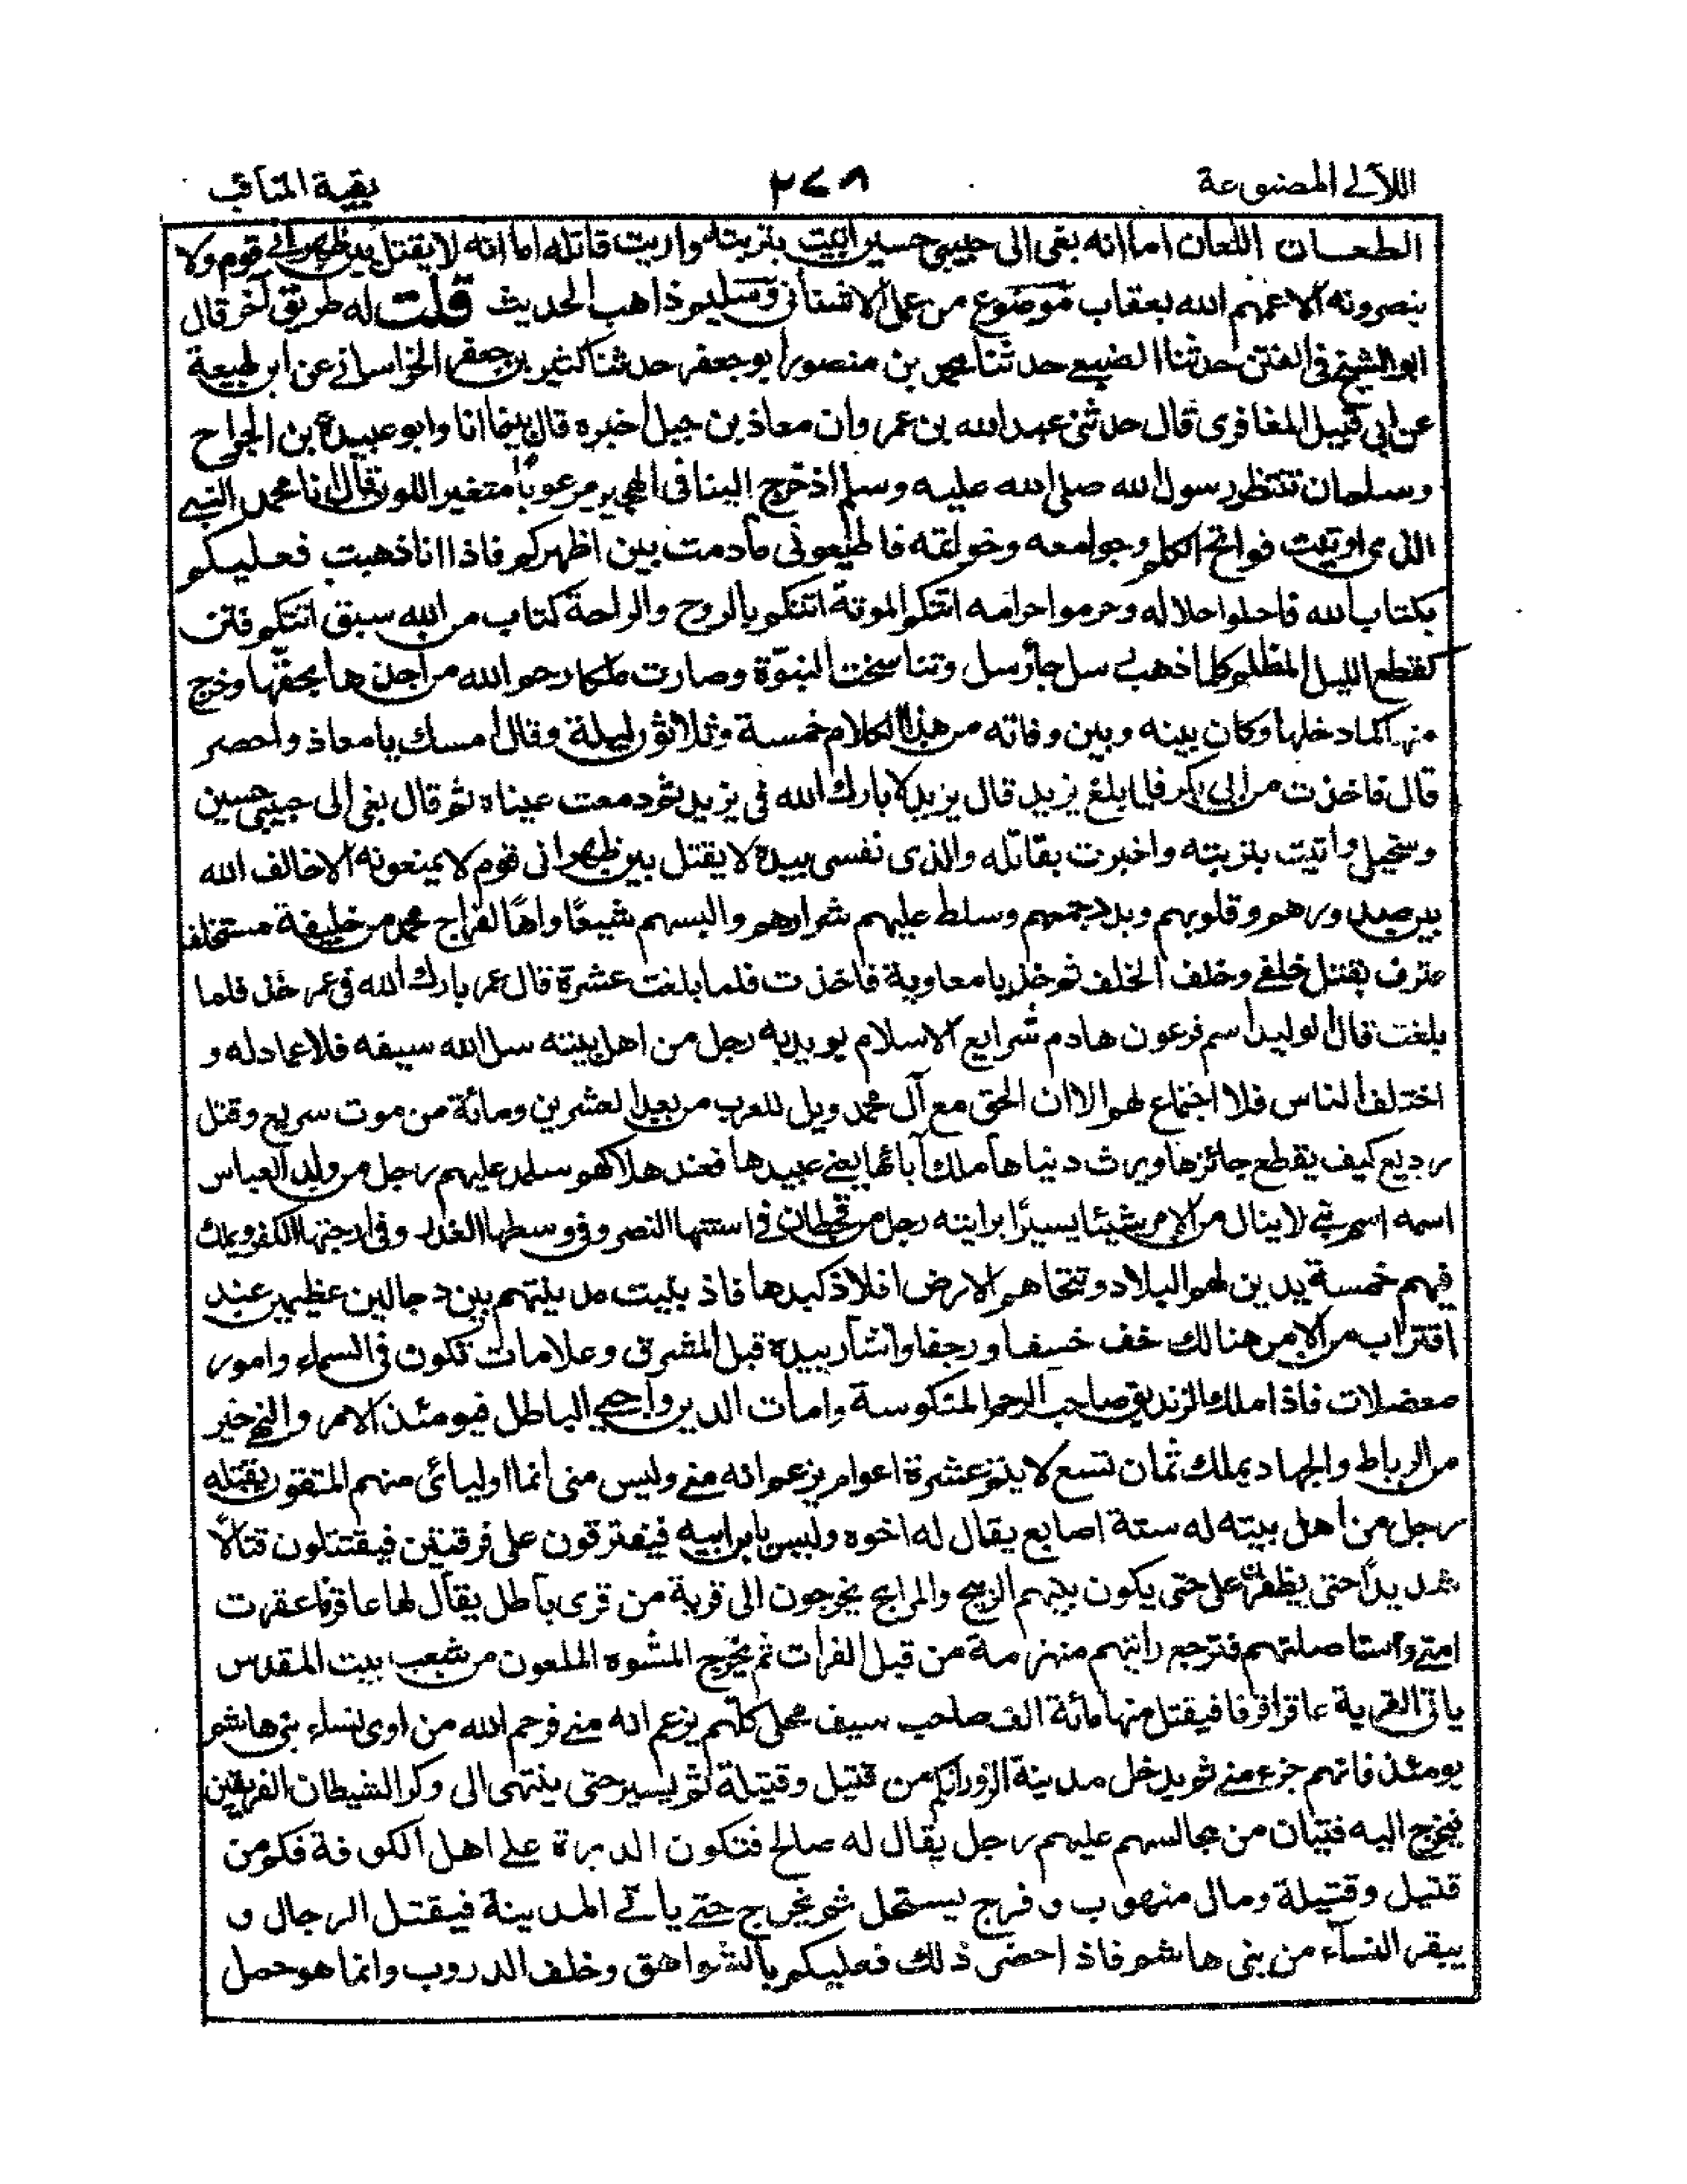 اللآلى المصنوعة ٢٧٨ بقية المناقب
الطعان اللعان اما انه بغى الى حبيبى حسين اتيت بتربته واريت قاتله اما انه لا يقتل بين ظهرانى قوم ولا
ينصرونه الا عمهم الله بعقاب موضوع من عمل الاشنانى وسليم ذاهب الحديث قلت له طريق آخر قال
ابو الشيخ فى الفتن حدثنا الضبيعى حدثنا محمد بن منصور ابو جعفر حدثنا كثير بن جعفر الخراسانى عن ابن لهيعة
عن ابى قبيل المغافرى قال حدثنى عبد الله بن عمر وان معاذ بن جبل اخبره قال بينما انا وابو عبيدة بن الجراح
وسلمان ننتظر رسول الله صلى الله عليه وسلم اذ خرج الينا فى الهجير مرعوبا متغير اللون فقال انا محمد النبى
الذى اوتيت فواتح الكلم وجوامعه وخواتمه فاطيعونى مادمت بين اظهركم فاذا انا ذهبت فعليكم
بكتاب الله فاحلوا حلاله وحرموا حرامه اتتكم الموتة اتتكم بالروح والراحة كتاب من الله سبق اتتكم فتن
كقطع الليل المظلم كلما ذهب رسل جاء رسل وتناسخت النبوة وصارت ملكا رحم الله من اخذها بحقها وخرج
منها كما دخلها وكان بينه وبين وفاته من هذا الكلام خمسة وثلاثون ليلة وقال امسك يا معاذ واحصر
قال فاخذت من ابى بكر فلما بلغ يزيد قال يزيد لا بارك الله فى يزيد ثم دمعت عيناه ثم قال بغى الى حبيبى حسين
وسخيل واتيت بتربته واخبرت بقاتله والذى نفسى بيده لا يقتل بين ظهرانى قوم لا يمنعونه الا خالف الله
بين صدورهم وقلوبهم وبدد جمعهم وسلط عليهم شرارهم والبسهم شيعا واها لفراخ محمد من خليفة مستخلف
مترف يقتل خلفى وخلف الخلف ثم خذ يا معاوية فاخذت فلما بلغت عشرة قال عمر بارك الله فى عمر خذ فلما
بلغت قال الوليد اسم فرعون هادم شرايع الاسلام يوبد به رجل من اهل بيته سل الله سيفه فلا عماد له و
اختلف الناس فلا اجتماع لهم الا ان الحق مع آل محمد ويل للعرب من بعد العشرين ومائة من موت سريع وقتل
رديع كيف يقطع جائزها ويرث دنياها ملك آبائها يعنى عبيدها فعند هلاكهم سلمد عليهم رجل من ولد العباس
اسمه اسم نبى لا ينال من الامر شيئا يسيرا برايته رجل من قحطان فى استتها النصر وفى وسطها الغدر وفى ازجتها الكفر ويملك
فيهم خمسة يدين لهم البلاد وتتخاهم الارض افلاذ كبدها فاذ بنيت مدينتهم بين دجالين عظيمين عند
اقتراب من الامر هنالك خف خسفا ورجفا واشار بيده قبل المشرق وعلامات تكون فى السماء وامور
معضلات فاذا ملك الزنديق صاحب الرحم المنكوسة وامات الدين واحيى الباطل فيومئذ الامر والنهى خير
من الرباط والجهاد يملك ثمان تسع لا يتم عشرة اعوام يزعم انه منى وليس منى انما اوليائى منهم المتقون يقتله
رجل من اهل بيته له ستة اصابع يقال له اخوه وليس بابن ابيه فيفترقون على فرقتين فيقتتلون قتالا
شديدا حتى يظفر على حتى يكون بينهم الزيج والمرابج يخرجون الى قرية من قرى باطل يقال لها عاقرفا عقرت
امتى واستاصلتهم فترجع رايتهم منهزمة من قبل الفرات ثم يخرج المشوه الملعون من شعب بيت المقدس
ياتى القرية عاقرا قرفا فيقتل منها مائة الف صاحب سيف محلى كلهم يزعم انه منى فرحم الله من اوى نساء بنى هاشم
يومئذ فانهم جزء منى ثم يدخل مدينة الزوراء كم من قتيل وقتيلة ثم يسير حتى ينتهى الى وكر الشيطان الفريقين
فيخرج اليه فتيان من مجالسهم عليهم رجل يقال له صالح فتكون الدبرة على اهل الكوفة فكم من
قتيل وقتيلة ومال منهوب وفرج يستحل ثم يخرج حتى ياتى المدينة فيقتل الرجال و
يبقر النساء من بنى هاشم فاذ احضر ذلك فعليكم بالشواهق وخلف الدروب وانما هو حمل